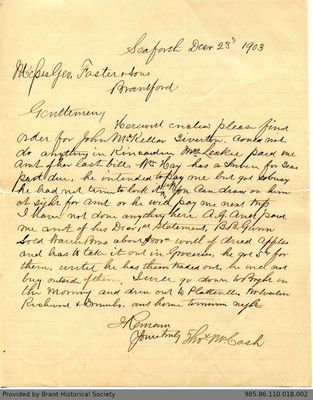 Seaforth Decr 23d 1903
Messrs Geo. Foster & Sons
Brantford
Gentlemen
Herewith enclosed please find
order for John McKellar Tiverton. Could not
do anything in Kincardine Leckie paid me
Amt after last bill. Wm Hay has a for
past due, he intended to pay me but got so busy
he had not time to look it up. You Can draw on him
at sight for Amt or he will pay me next trip
I have not done anything here. A.G. Ault paid
me amt of his Decr 1st Statement, B.B. Gunn
Sold Warren Bros about worth of dried Apples
and has to take it out in Groceries, he got for
them, until he has them traded out, he will not
buy outside of them, I will go down to
in the Morning and drive out to Plattsville
& Drumbo, and home tomorrow night
I Remain
Yours truly Thos McCash
Provided by Brant Historical Society
985.86.110.018.002